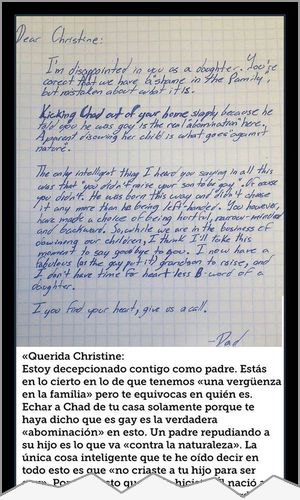 Dear Christine:
I'm disappointed in you as a daughter. You're
correct that we have a "shame in the family",
but mistaken about what it is.
Kicking Chad out of your home simply because he
told you he was gay is the real "abomination" here.
A parent disowning her child is what goes "against
nature".
The only intelligent thing I heard you saying in all this
was that "you didn't raise your son to be gay". Of course
you didn't. He was born this way and didn't choose
it any more than he being left-handed. You however,
have made a choice of being hurtful, narrow-minded
and backward. So, while we are in the business of
disowning our children, I think I'll take this
moment to say goodbye to you. I now have a
fabulous (as the gay put it) grandson to raise, and
I don't have time for heart less B-word of a
daughter.
If you find your heart, give us a call.
-Dad
«Querida Christine:
Estoy decepcionado contigo como padre. Estás
en lo cierto en lo de que tenemos «una vergüenza
en la familia» pero te equivocas en quién es.
Echar a Chad de tu casa solamente porque te
haya dicho que es gay es la verdadera
«abominación» en esto. Un padre repudiando a
su hijo es lo que va «contra la naturaleza». La
única cosa inteligente que te he oído decir en
todo esto es que «no criaste a tu hijo para ser